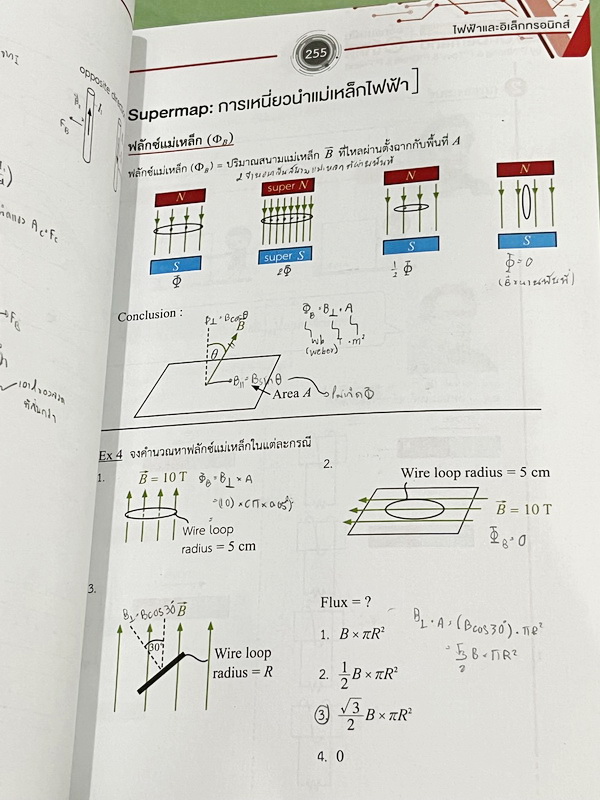 ไฟฟ้าและอิเล็กทรอนิกส์
255
opposite
Supermap: การเหนี่ยวนำแม่เหล็กไฟฟ้า
ฟลักซ์แม่เหล็ก (Φ_B)
ฟลักซ์แม่เหล็ก (Φ_B) = ปริมาณสนามแม่เหล็ก B ที่ไหลผ่านตั้งฉากกับพื้นที่ A
N super N N N
S super S S S
Φ 2Φ 1/2 Φ Φ = 0
Conclusion :
B⊥ = Bcosθ
B
θ
Φ_B = B⊥ • A
Wb T • m²
(weber)
B|| = Bsinθ
Area A
ไม่เกิด Φ
Ex 4 จงคำนวณหาฟลักซ์แม่เหล็กในแต่ละกรณี
1.
B = 10 T
Φ_B = B⊥ × A
Wire loop
radius = 5 cm
2.
Wire loop radius = 5 cm
B = 10 T
Φ_B = 0
3.
B⊥ = Bcos30° B
30°
Wire loop
radius = R
Flux = ?
1. B × πR²
2. 1/2 B × πR²
3. √3/2 B × πR²
4. 0
B⊥ • A = (Bcos30°) • πR²
= √3/2 B × πR²